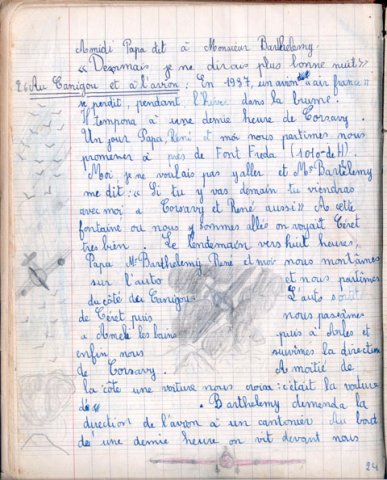 A midi Papa dit à Monsieur Barthelemy :
« Desormais je ne dirais plus bonne nuit »
26 Au Canigou et à l'avion : En 1937, un avion "air france"
se perdit, pendant l'hiver dans la brume.
Il tempona à une demie heure de Corsavy.
Un jour Papa, René et moi nous partîmes nous
promener à près de Font Freda (1010 de H)
Moi je ne voulais pas y aller et Mr Barthélemy
me dit : « Si tu y vas demain tu viendras
avec moi à Corsavy et René aussi » A cette
fontaine ou nous y sommes allés on voyait Céret
tres bien. Le lendemain vers huit heures,
Papa Mr Barthelemy René et moi nous montâmes
sur l'auto et nous partîmes
du côté des Canigous. L'auto
de Céret puis nous passâmes
a Amelie les bains puis à Arles et
enfin nous suivîmes la direction
de Corsavy. A moitié de
la côte une voiture nous croisa : c'était la voiture
de . Barthelemy demenda la
direction de l'avion à un cantonier Au bout
de une demie heure on vit devant nous
24